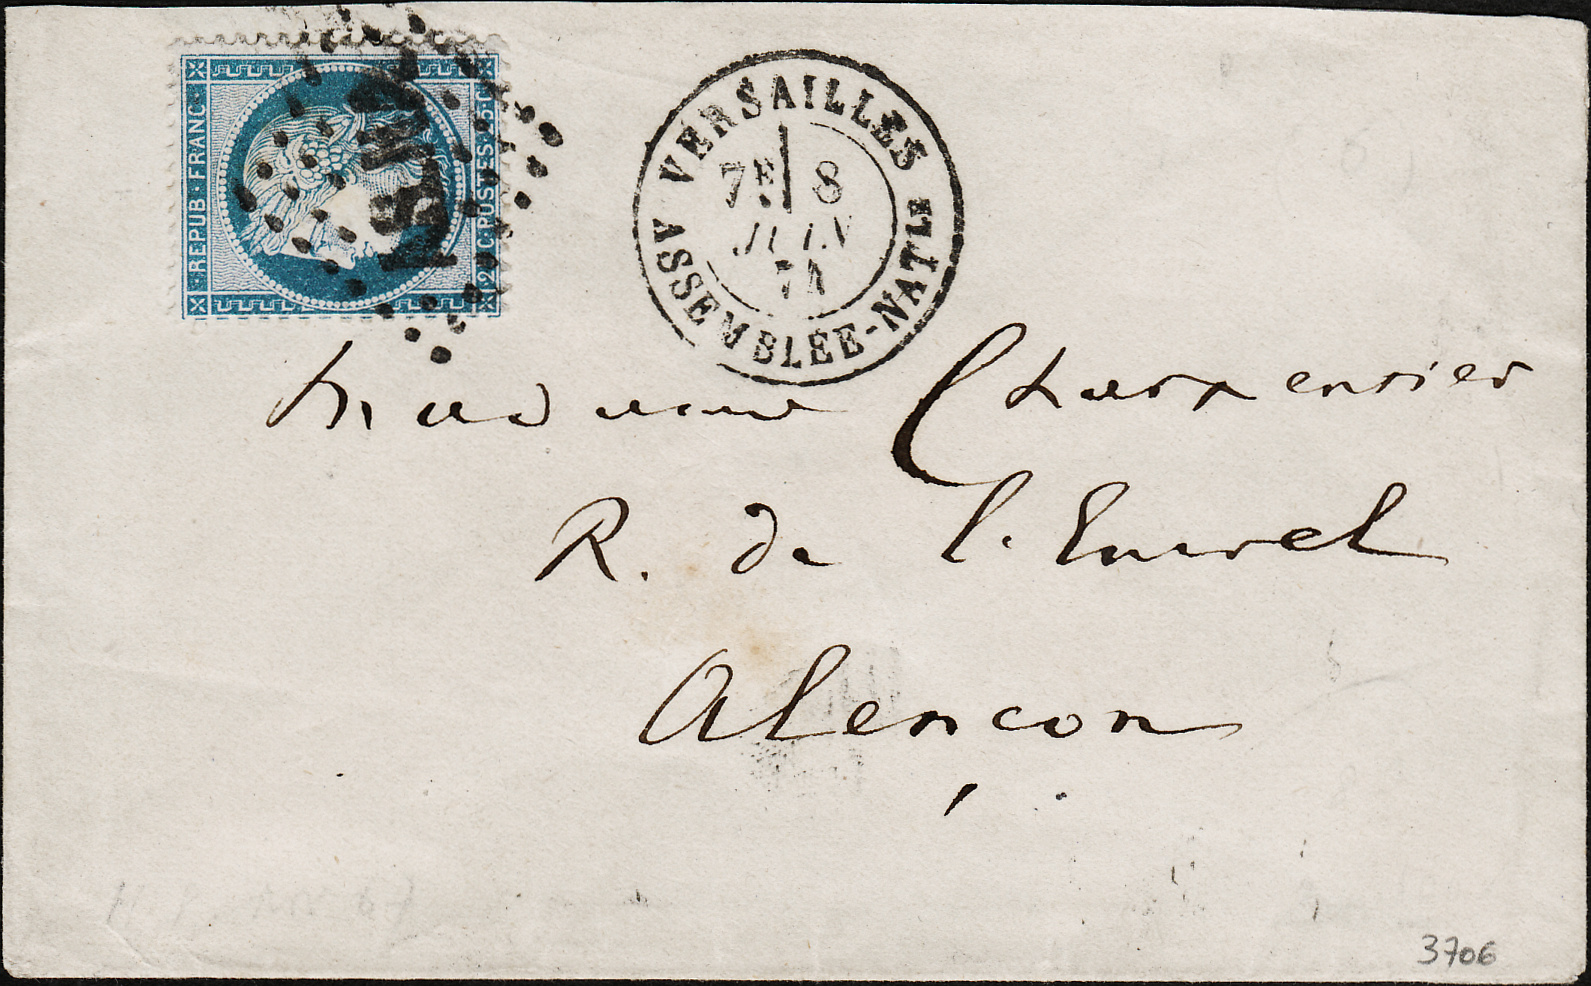 REPUB · FRANC ·
25 C · POSTES · 25 C
VERSAILLES
7E 8
JUIN
71
ASSEMBLÉE-NATLE
Madame Charpentier
R. de l'Ecusel
Alençon
3706